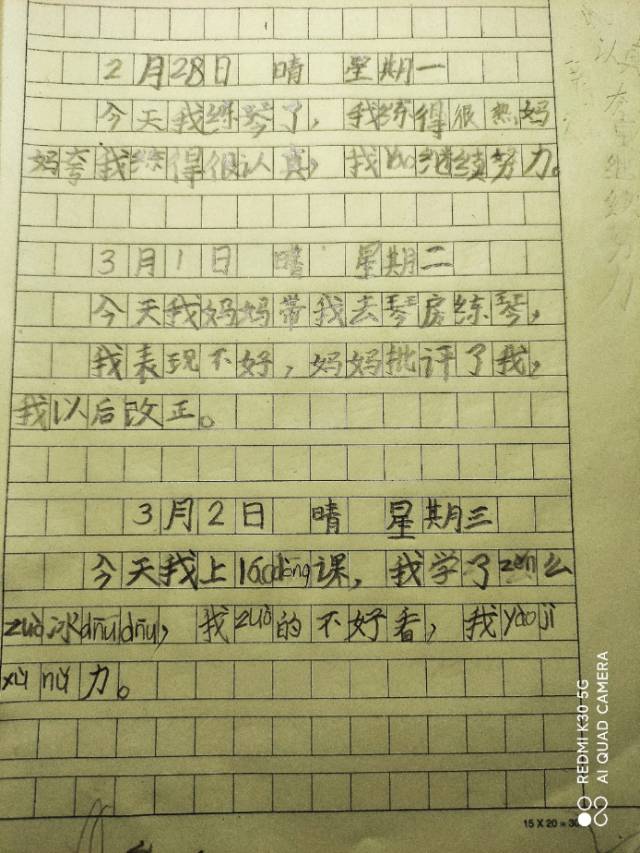 2月28日 晴 星期一
今天我练琴了，我练得很热妈
妈夸我练得很认真，我yao继续努力。
3月1日 晴 星期二
今天我妈妈带我去琴房练琴，
我表现不好，妈妈批评了我，
我以后改正。
3月2日 晴 星期三
今天我上laodong课，我学了zen么
zuò冰dūndūn，我zuò的不好看，我yàojì
xù nǔ力。
15×20=300
REDMI K30 5G
AI QUAD CAMERA